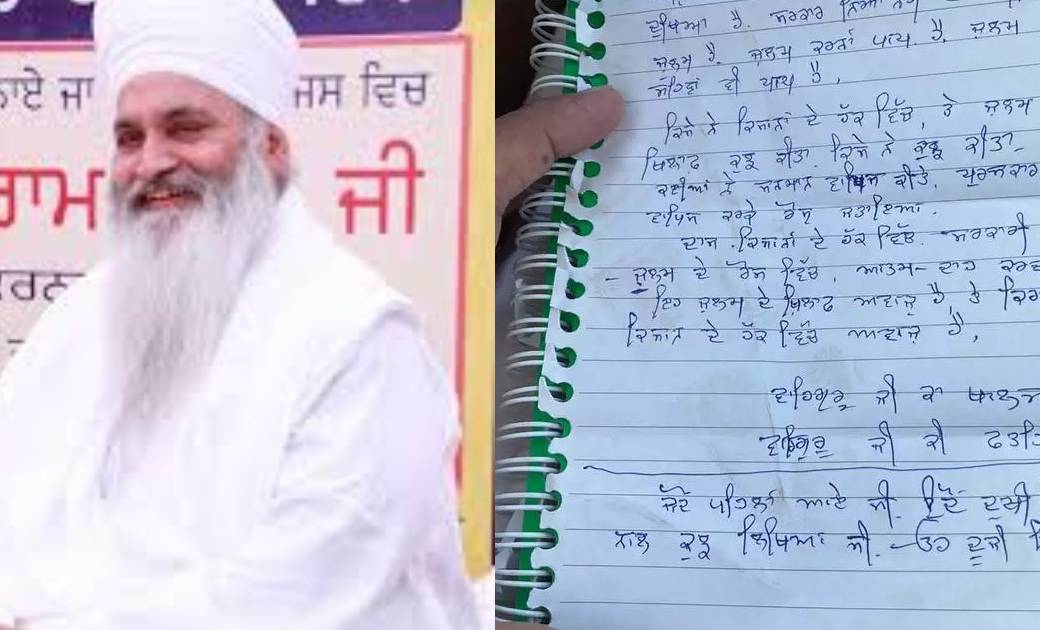 ਨਾਏ ਜਾ
ਜਸ ਵਿਚ
ਰਾਮ
ਜੀ
ਕਰਨ
ਦੁਖਿਆ ਹੈ. ਸਰਕਾਰ
ਜ਼ੁਲਮ ਹੈ. ਜ਼ੁਲਮ ਕਰਨਾ ਪਾਪ ਹੈ, ਜ਼ੁਲਮ
ਸਹਿਣਾ ਵੀ ਪਾਪ ਹੈ,
ਕਿਸੇ ਨੇ ਕਿਸਾਨਾਂ ਦੇ ਹੱਕ ਵਿੱਚ, ਤੇ ਜ਼ੁਲਮ
ਖਿਲਾਫ ਕੁਝ ਕੀਤਾ. ਕਿਸੇ ਨੇ ਕੁਝ ਕੀਤਾ-
ਕਈਆਂ ਨੇ ਸਨਮਾਨ ਵਾਪਿਸ ਕੀਤੇ, ਪੁਰਸਕਾਰ
ਵਾਪਿਸ ਕਰਕੇ ਰੋਸ ਜਤਾਇਆ.
ਦਾਸ ਕਿਸਾਨਾਂ ਦੇ ਹੱਕ ਵਿੱਚ. ਸਰਕਾਰੀ
- ਜ਼ੁਲਮ ਦੇ ਰੋਸ ਵਿੱਚ, ਆਤਮ-ਦਾਹ ਕਰਦਾ
ਇਹ ਜ਼ੁਲਮ ਦੇ ਖ਼ਿਲਾਫ ਆਵਾਜ਼ ਹੈ, ਤੇ ਕਿਰ
ਕਿਸਾਨ ਦੇ ਹੱਕ ਵਿੱਚ ਆਵਾਜ਼ ਹੈ,
ਵਾਹਿਗੁਰੂ ਜੀ ਕਾ ਖਾਲਸਾ
ਵਾਹਿਗੁਰੂ ਜੀ ਕੀ ਫਤਹਿ
ਜਦੋਂ ਪਹਿਲਾਂ ਆਏ ਸੀ. ਉਦੋਂ ਦੁਖੀ
ਨਾਲ ਕੁਝ ਲਿਖਿਆ ਸੀ. ਉਹ ਦੂਜੀ